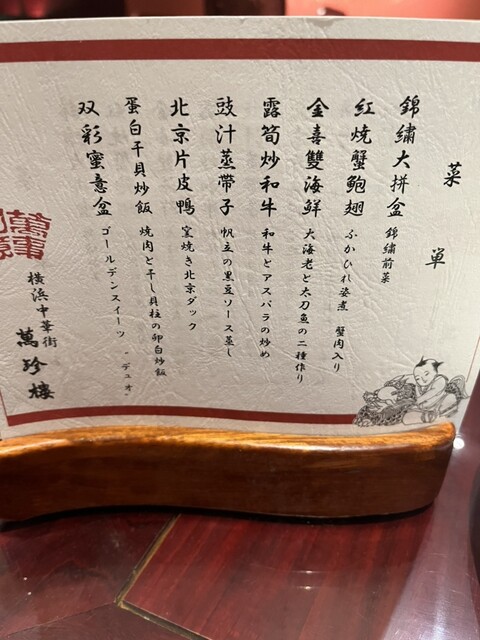 菜単
錦繡大拼盆 錦繡前菜
紅焼蟹鮑翅 ふかひれ姿煮 蟹肉入り
金喜雙海鮮 大海老と太刀魚の二種作り
露筍炒和牛 和牛とアスパラの炒め
豉汁蒸帶子 帆立の黒豆ソース蒸し
北京片皮鴨 窯焼き北京ダック
蛋白干貝炒飯 焼肉と干し貝柱の卵白炒飯
双彩蜜意盆 ゴールデンスイーツ "デュオ"
横浜中華街
萬珍樓